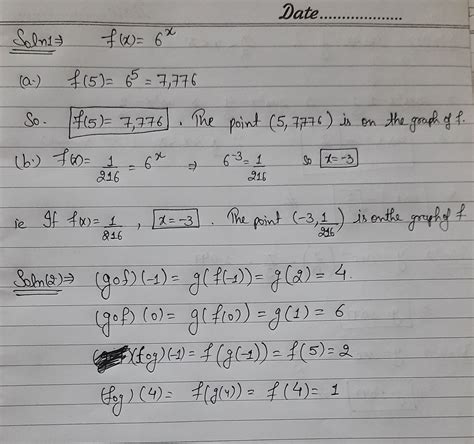 Date...................
Soln1⇒ f(x) = 6^x
(a.) f(5) = 6^5 = 7,776
So. f(5) = 7,776 . The point (5, 7,776) is on the graph of f.
(b.) f(x) = 1/216 = 6^x ⇒ 6^-3 = 1/216 so x = -3
ie If f(x) = 1/216 , x = -3 . The point (-3, 1/216) is on the graph of f
Soln(2)⇒ (gof)(-1) = g(f(-1)) = g(2) = 4.
(gof)(0) = g(f(0)) = g(1) = 6
(fog)(-1) = f(g(-1)) = f(5) = 2
(fog)(4) = f(g(4)) = f(4) = 1